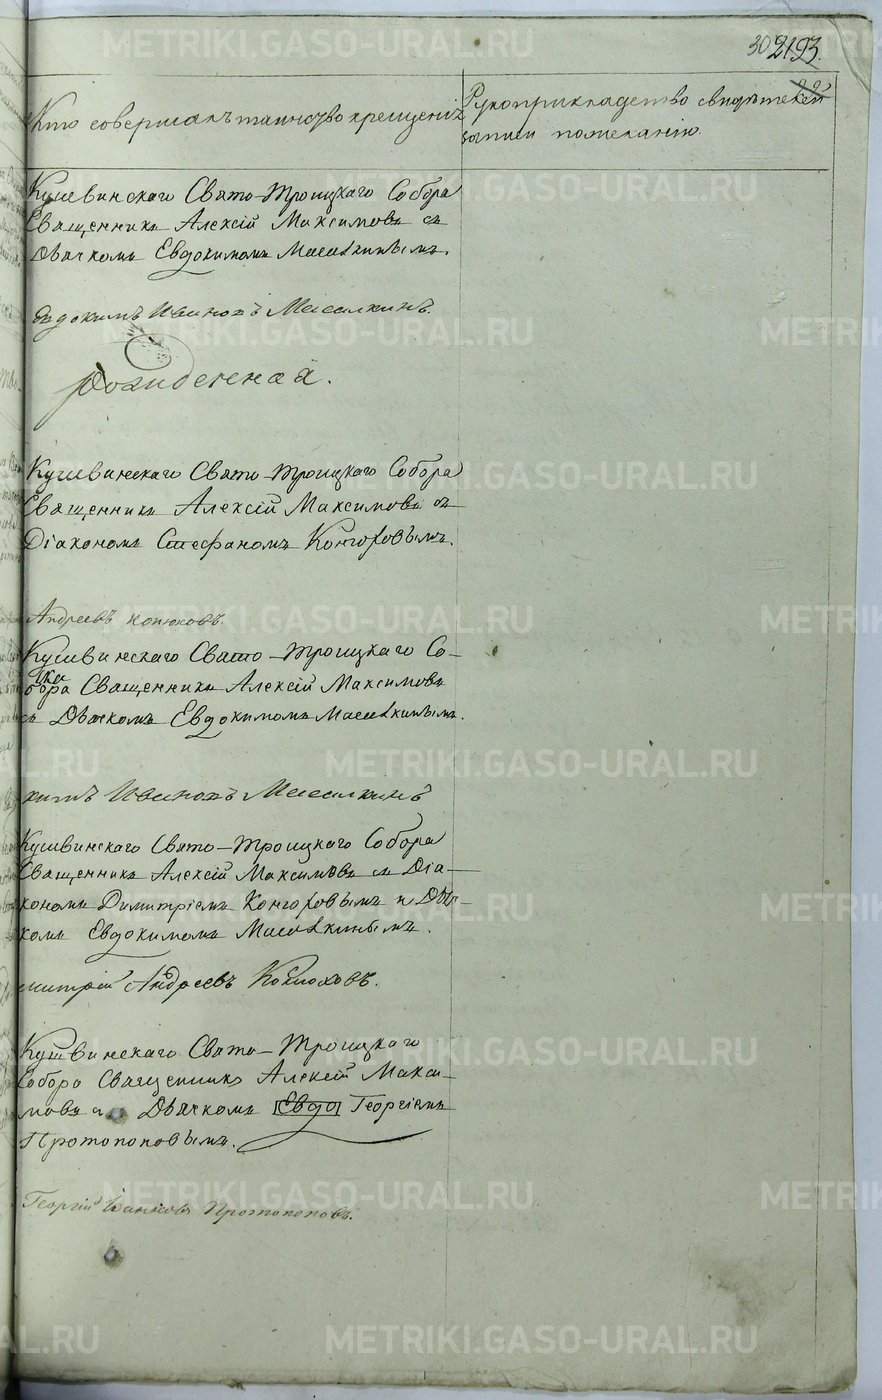 302193.
22
Кто совершалъ таинство крещенія
Рукоприкладство свидѣтелей
записи по желанію
Кушвинскаго Свято-Троицкаго Собора
Священникъ Алексій Максимовъ съ
Дьячкомъ Евдокимомъ Масалкинымъ.
Евдокимъ Ивановъ Масалкинъ.
Кушвинскаго Свято-Троицкаго Собора
Священникъ Алексій Максимовъ съ
Діакономъ Стефаномъ
Андреевъ Конюховъ.
Кушвинскаго Свято-Троицкаго Со-
бора Священникъ Алексій Максимовъ
съ Дьячкомъ Евдокимомъ Масалкинымъ.
кимъ Ивановъ Масалкинъ
Кушвинскаго Свято-Троицкаго Собора
Священникъ Алексій Максимовъ съ Діа-
кономъ Димитріемъ и Дьяч-
комъ Евдокимомъ Масалкинымъ.
митрій Андреевъ Конюховъ.
Кушвинскаго Свято-Троицкаго
Собора Священникъ Алексій Макси-
мовъ съ Дьячкомъ Евдо Георгіемъ
Протопоповымъ.
Георгій Протопоповъ.
METRIKI.GASO-URAL.RU